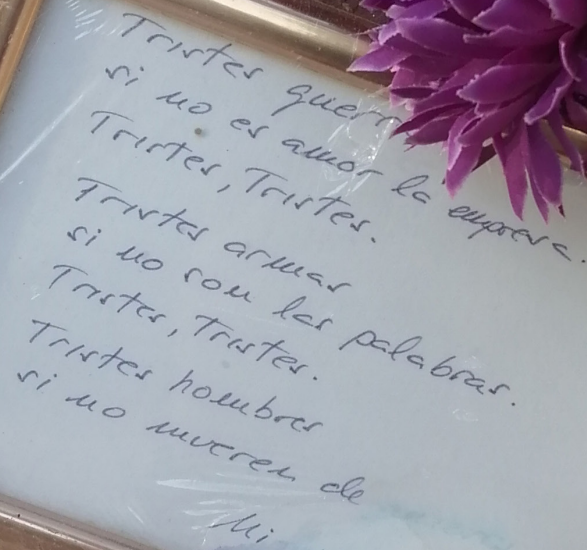 Tristes guerr
si no es amor la empresa.
Tristes, Tristes.
Tristes armas
si no son las palabras.
Tristes, Tristes.
Tristes hombres
si no mueren de
Mi